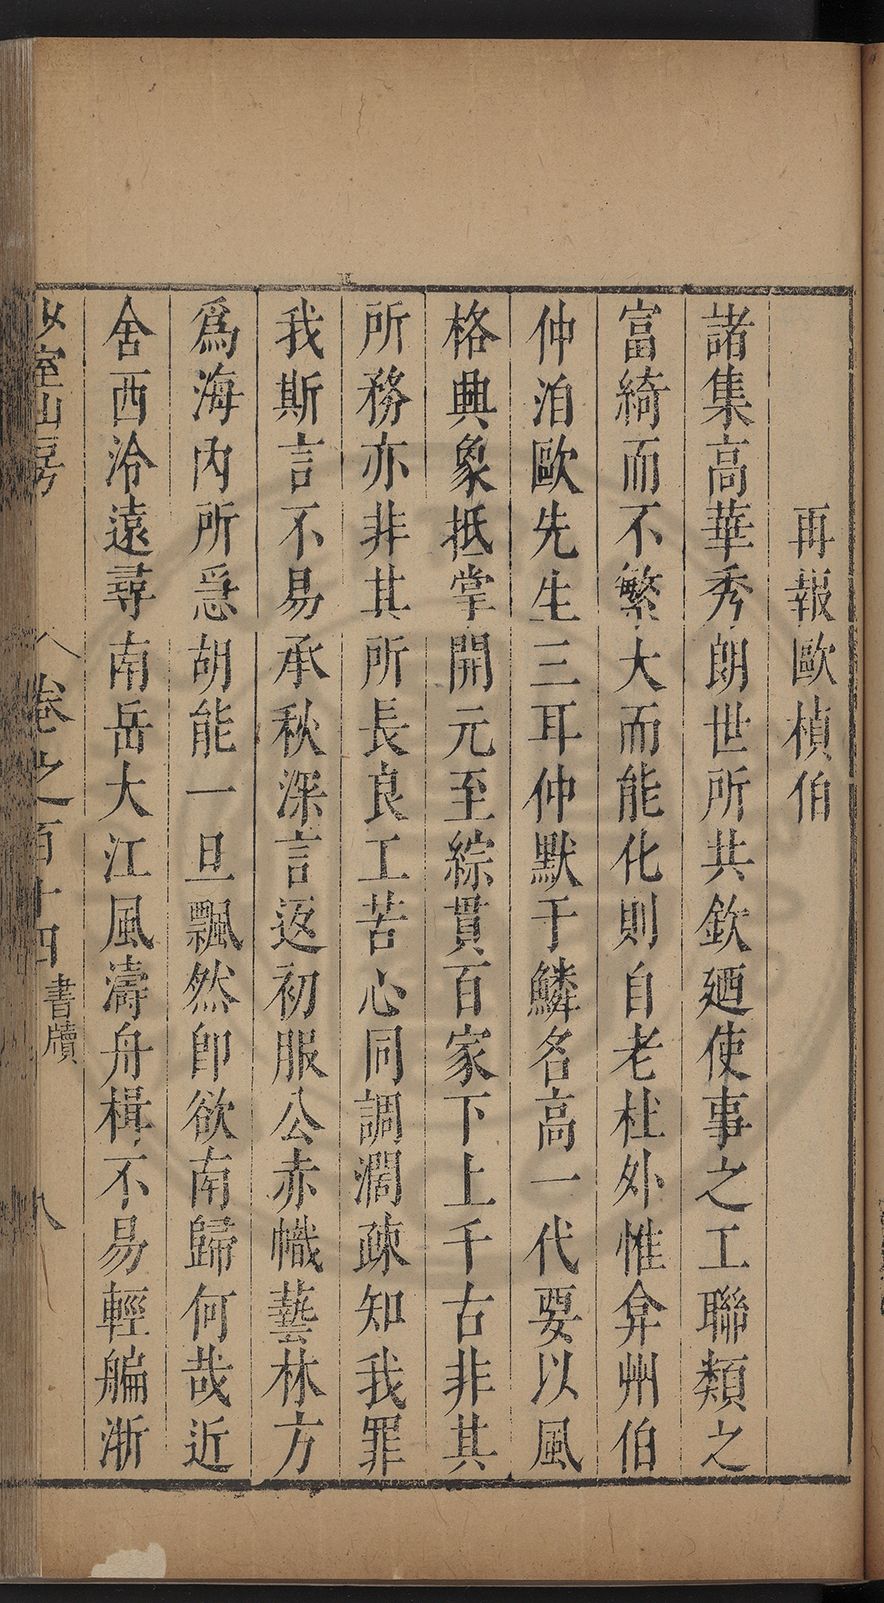 再報歐楨伯
諸集高華秀朗世所共欽廼使事之工聯類之
富綺而不繁大而能化則自老杜外惟弇州伯
仲洎歐先生三耳仲默于鱗名高一代要以風
格興象抵掌開元至綜貫百家下上千古非其
所務亦非其所長良工苦心同調濶疎知我罪
我斯言不易承秋深言返初服公赤幟藝林方
爲海內所急胡能一旦飄然卽欲南歸何哉近
舍西泠遠尋南岳大江風濤舟楫不易輕艑浙
少室山房 卷之百十四 書牘 八